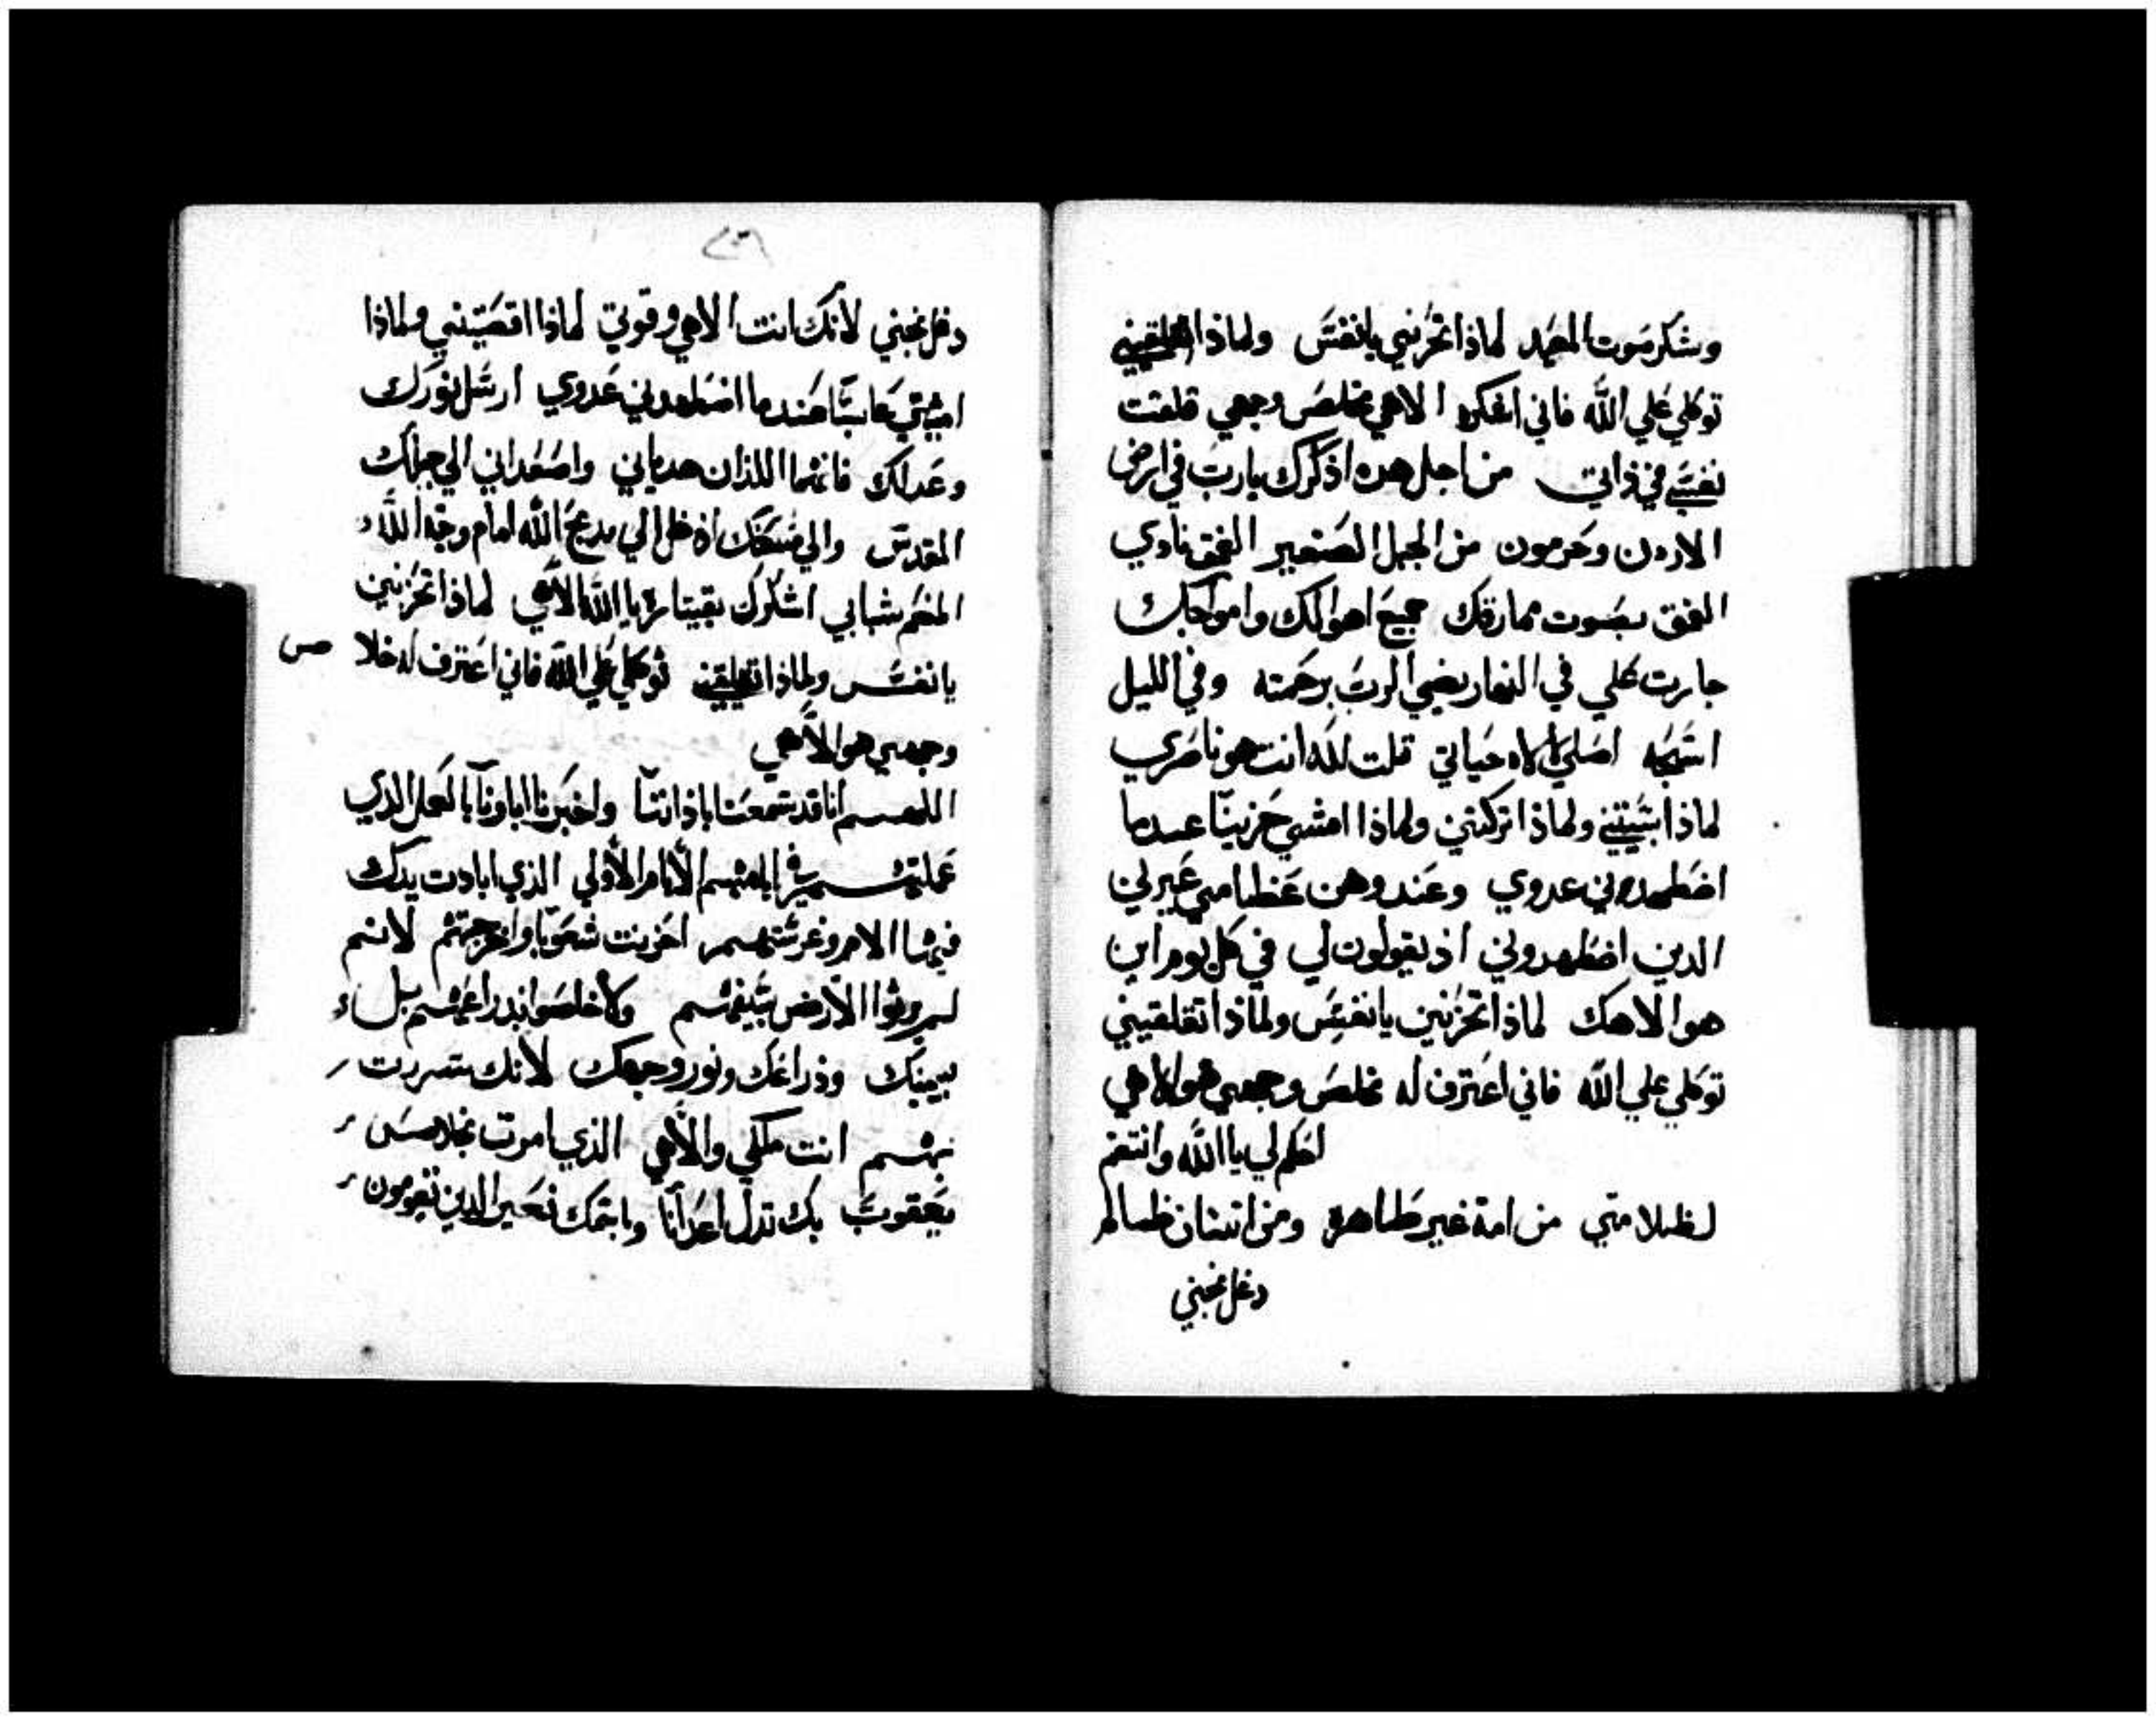 وشكر صوت المعيد لماذا تحزنيني يانفس ولماذا تقلقيني
توكلي علي الله فاني اشكره الاهي مخلص وجهي قلقت
نفسي في ذاتي من اجل هذه اذكرك يارب في ارض
الاردن وحرمون من الجبل الصغير العمق نادي
العمق بصوت مازرقك جميع اهوالك وامواجك
جازت علي في النهار يضي الرب برحمته وفي الليل
اسبحه اصلي لاله حياتي قلت لله انت هو ناصري
لماذا نسيتني ولماذا تركتني ولماذا امشي حزينا عندما
اضطهدوني عدوي وعند وهن عظامي عيرني
الدين اضطهدوني اذ يقولون لي في كل يوم اين
هو الاهك لماذا تحزنين يانفس ولماذا تقلقيني
توكلي علي الله فاني اعترف له مخلص وجهي هو الاهي
احكم لي يا الله وانتقم
لظلامتي من امة غير طاهرة ومن انسان ظالم
دغل نجني
دغل نجني لانك انت الاهي وقوتي لماذا اقصيتني ولماذا
امشي عابسا عندما اضطهدني عدوي ارسل نورك
وعدلك فانهما اللذان هدياني واصعداني الي جبلك
المقدس والي مسكنك اذخل الي مدبح الله امام وجه الله
المنعم شبابي اشكرك بقيتارة يا الله الاهي لماذا تحزنين
يانفس ولماذا تقلقيني توكلي علي الله فاني اعترف له خلا ص
وجهي هو الاهي
اللهم انا قد سمعنا باذاننا واخبرنا اباونا بالعمل الدي
عملتهم في ايامهم الايام الاولي الذي ابادت يدك
فيها الامم وغرستهم احزنت شعوبا واخرجتهم لانهم
لم يرثوا الارض بسيفهم ولا خلصوا بذراعهم بل
بيمينك وذراعك ونور وجهك لانك سررت
بهم انت ملكي والاهي الذي امرت بخلاص
يعقوب بك ندل اعدانا وباسمك نعير الدين يقومون